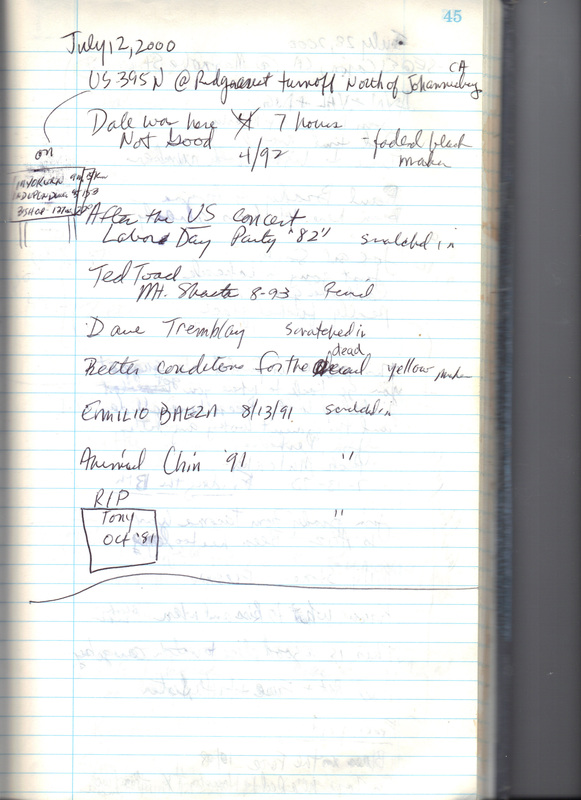 45
July 12, 2000
US 395 N @ Ridgecrest turnoff North of Johannesburg CA
Dale was here 7 hours
Not Good 4/92 - faded black marker
on
INYOKERN
INDEPENDENCE
BISHOP
After the US concert
Labor Day Party "82" scratched in
Ted Toad
Mt. Shasta 8-93
Dave Tremblay scratched in
Better conditions for the dead yellow marker
EMILIO BAEZA 8/13/91 scratched in
Animal Chin '91 "
RIP
Tony "
Oct '81